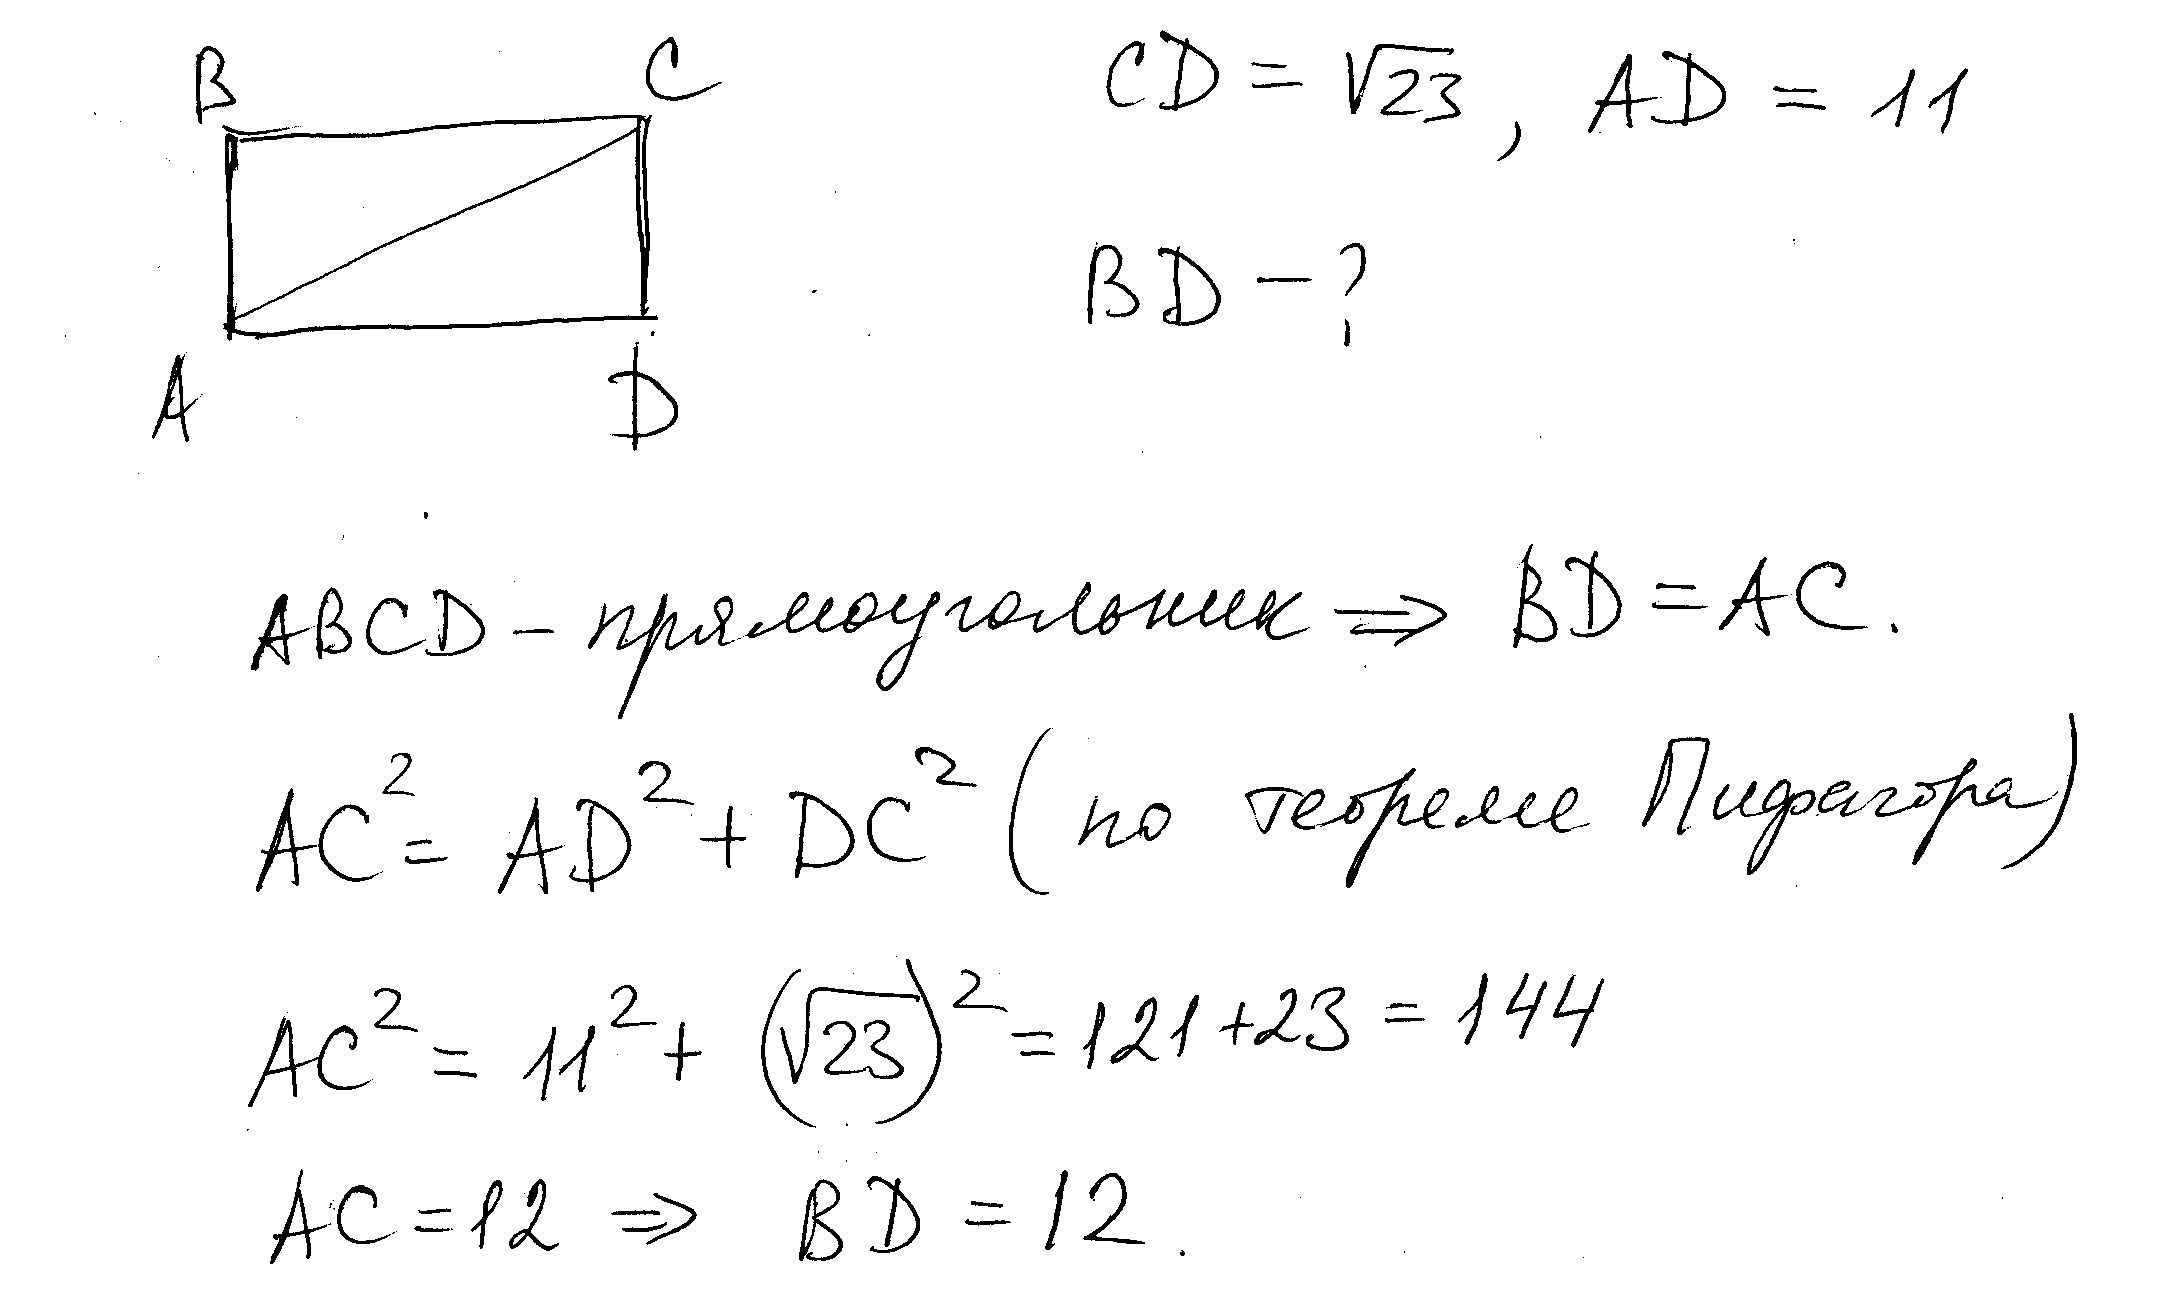 B C
CD = √23, AD = 11
BD - ?
A D
ABCD - прямоугольник ⇒ BD = AC.
AC² = AD² + DC² (по теореме Пифагора)
AC² = 11² + (√23)² = 121 + 23 = 144
AC = 12 ⇒ BD = 12.